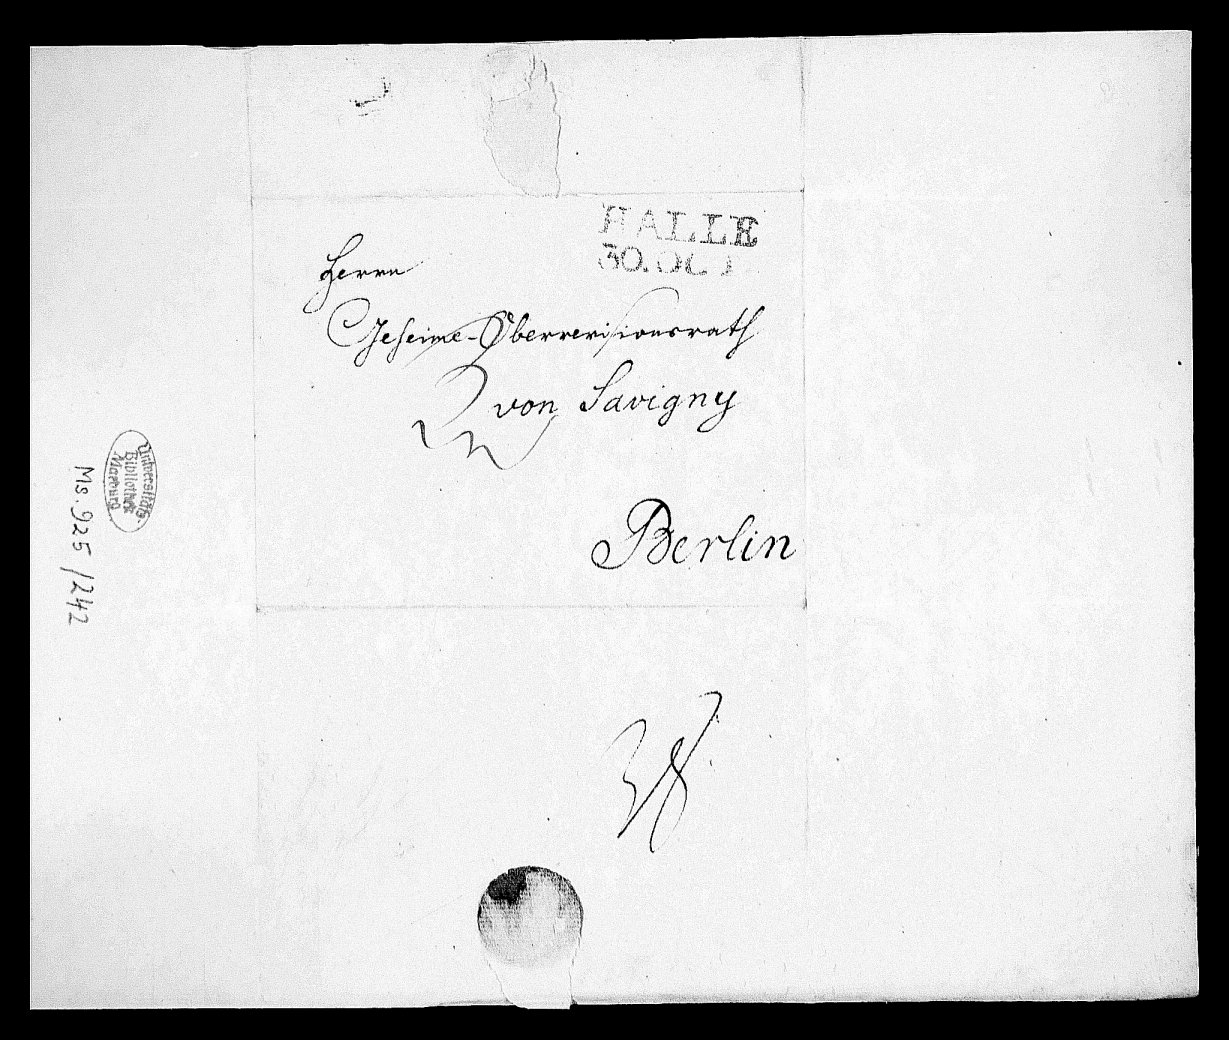 HALLE
30. OCT.
Herrn
Geheime-Oberrevisionsrath
von Savigny
Berlin
Universitäts-
Bibliothek
Marburg
Ms. 925 / 242